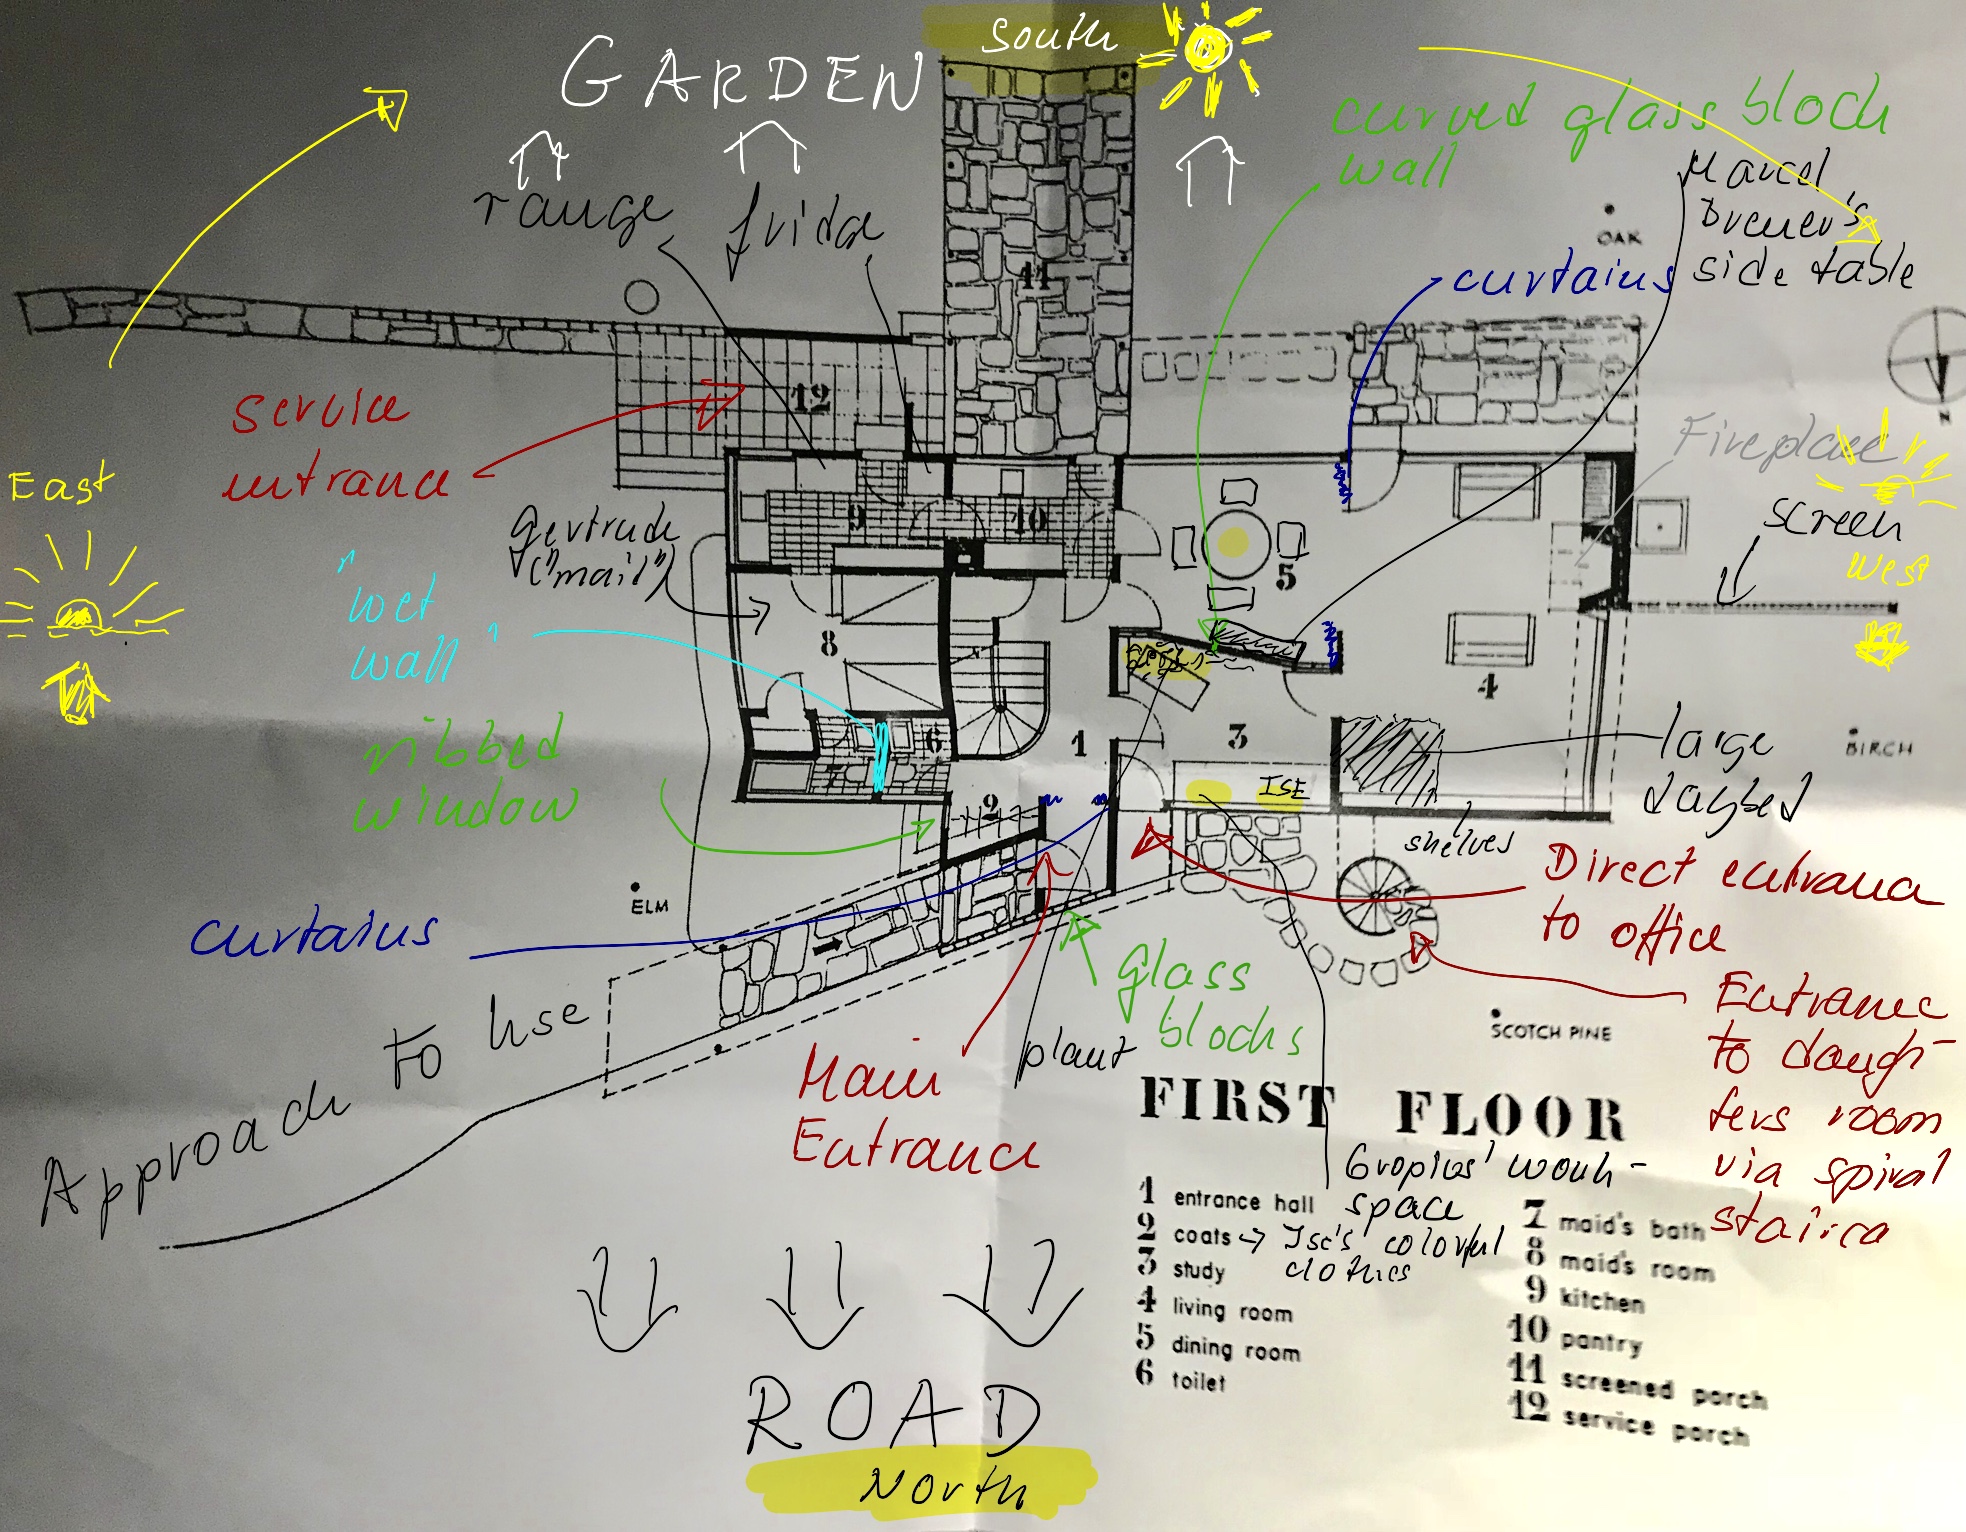 South
GARDEN
curved glass block
wall
range
fridge
Marcel
Breuer's
side table
OAK
curtains
11
12
service
entrance
N
Fireplace
East
screen
West
Gertrude
("maid")
"wet
wall"
9
10
5
8
4
ribbed
window
6
7
1
3
2
ISE
large
daybed
BIRCH
shelves
ELM
curtains
Direct entrance
to office
glass
blocks
Approach to hse
plant
Main
Entrance
SCOTCH PINE
Entrance
to daugh-
ters room
via spiral
FIRST FLOOR
Gropius' work-
space
1 entrance hall
2 coats → Ise's colorful
clothes
3 study
4 living room
5 dining room
6 toilet
7 maid's bath
8 maid's room
9 kitchen
10 pantry
11 screened porch
12 service porch
ROAD
North